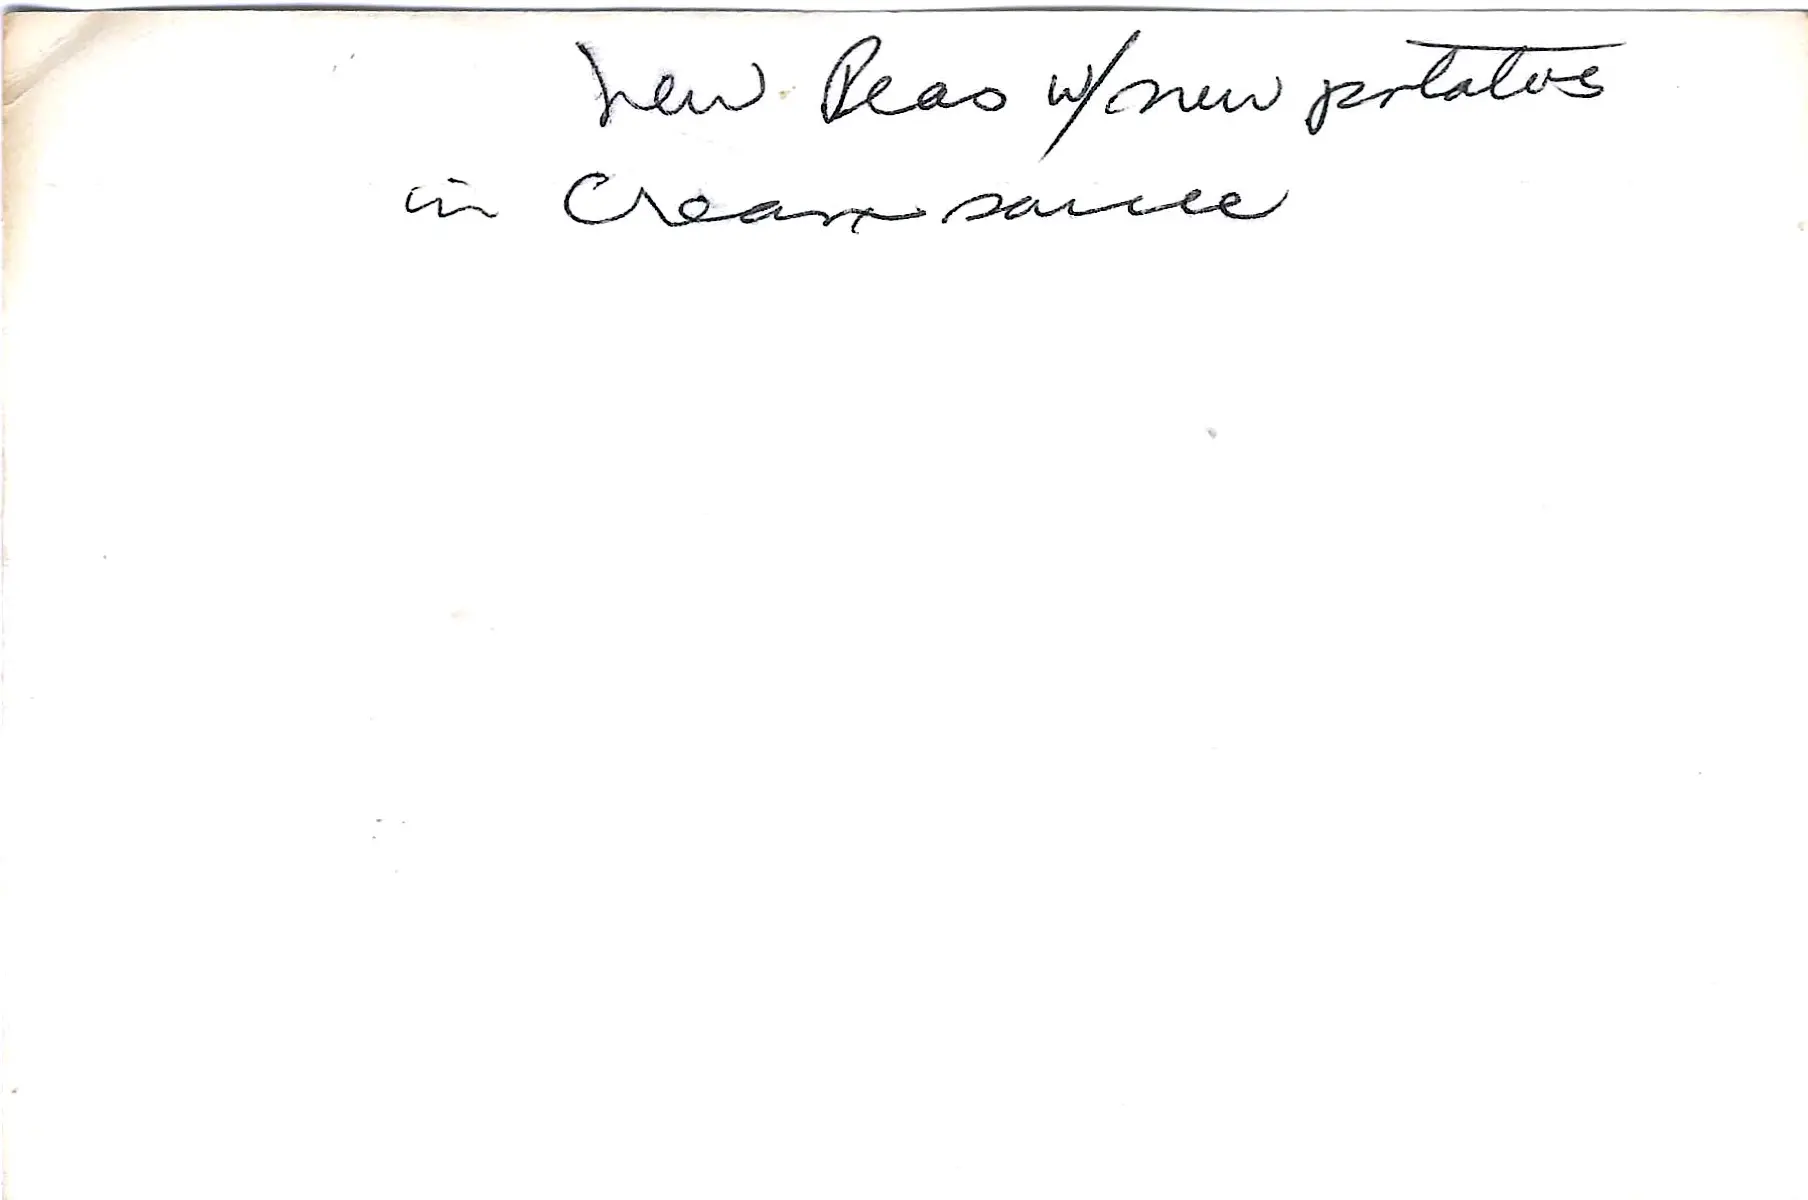 New Peas w/new potatoes
in Cream sauce